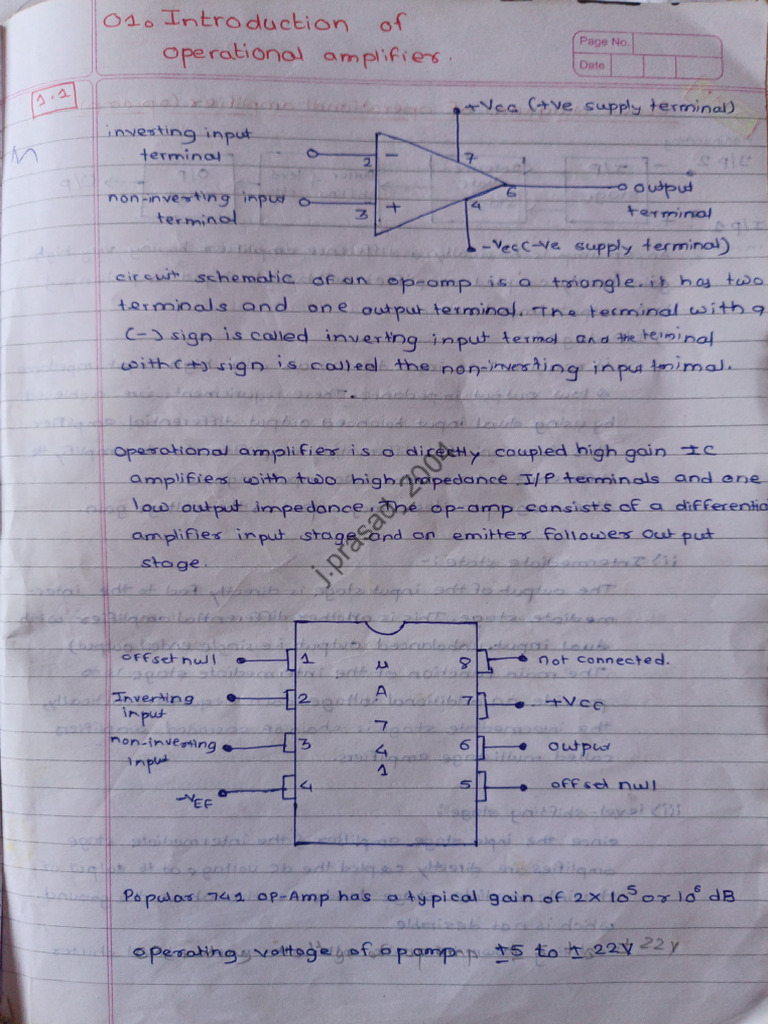 01. Introduction of
operational amplifier.
Page No.
Date
1.1
+Vcc (+ve supply terminal)
inverting input
terminal
2
-
7
6
output
terminal
non-inverting input
terminal
3
+
4
-Vcc(-ve supply terminal)
circuit schematic of an op-amp is a triangle. it has two
terminals and one output terminal. The terminal with a
(-) sign is called inverting input termal and the terminal
with (+) sign is called the non-inverting input tnimal.
operational amplifier is a directly coupled high gain IC
amplifier with two high impedance I/P terminals and one
low output impedance. The op-amp consists of a differentia
amplifier input stage and an emitter follower output
stage.
j.prasad_2004
offset null 1
8 not connected.
Inverting
input
2
7 +Vcc
non-inverting
input
3
6 output
-VEF 4
5 offset null
μA741
Popular 741 op-Amp has a typical gain of 2X10⁵ or 10⁶ dB
operating voltage of opamp ±5 to ± 22V 22V